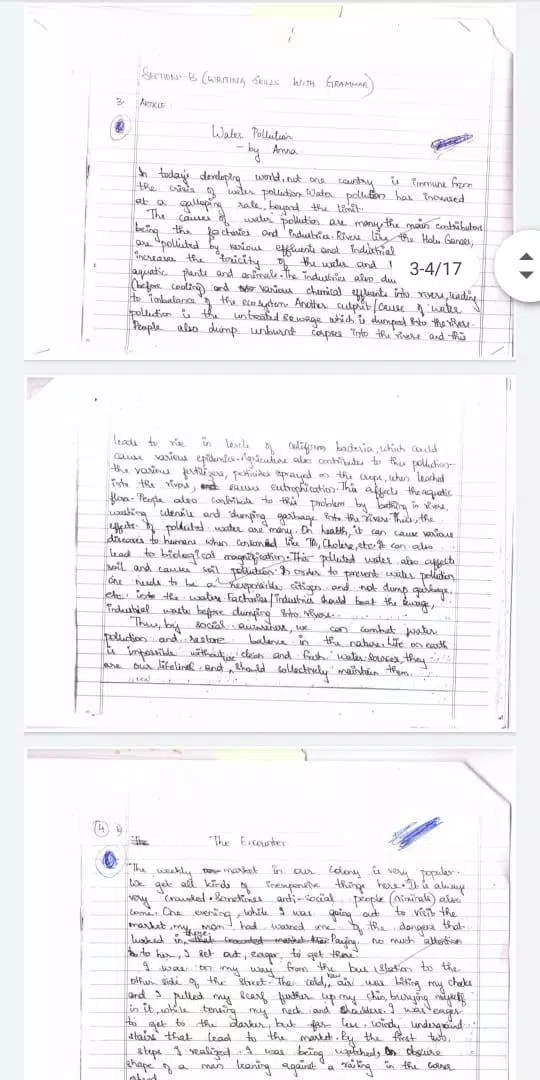 SECTION-B (WRITING SKILLS WITH GRAMMAR)
3. ARTICLE
Water Pollution
- by Anna
In today's developing world, not one country is immune from
the crisis of water pollution. Water pollution has increased
at a galloping rate, beyond the limit.
The causes of water pollution are many, the main contributors
being the factories and industries. Rivers like the Holy Ganges,
are polluted by various effluents and industrial
increases the toxicity of the water and
aquatic plants and animals. The industries also du
(before cooling) and various chemical effluents into rivers, leading
to imbalance of the ecosystem. Another culprit/cause of water
pollution is the untreated sewage which is dumped into the rivers.
People also dump unburnt corpses into the rivers and this
3-4/17
leads to rise in levels of coliform bacteria, which could
cause various epidemics. Agriculture also contributes to this pollution-
the various fertilizers, pesticides sprayed on the crops, when leached
into the rivers, causes eutrophication. This affects the aquatic
flora. People also contribute to this problem by bathing in rivers,
washing utensils and dumping garbage into the rivers. Thus, the
effects of polluted water are many. On health, it can cause various
diseases to humans when consumed like TB, Cholera, etc. It can also
lead to biological magnification. This polluted water also affects
soil and causes soil pollution. In order to prevent water pollution
one needs to be a responsible citizen and not dump garbage,
etc. into the water. Factories/industries should treat the sewage,
industrial waste before dumping into rivers.
Thus, by social awareness, we can combat water
pollution and restore balance in the nature. Life on earth
is impossible without clean and fresh water sources, they
are our lifelines and we should collectively maintain them.
4
The Encounter
The weekly market in our colony is very popular.
We get all kinds of inexpensive things here. It is always
very crowded. Sometimes anti-social people (criminals) also
come. One evening, while I was going out to visit the
market, my mom had warned me of the dangers that
lurked in there. Paying no much attention
to her, I set out, eager to get there.
I was on my way from the bus station to the
other side of the street. The cold, raw air was biting my cheeks
and I pulled my scarf further up my chin, burying myself
in it, while tensing my neck and shoulders. I was eager
to get to the darker, but far less windy underground
stairs that lead to the market. By the first two
steps I realized I was being watched. An obscure
shape of a man leaning against a railing in the corner